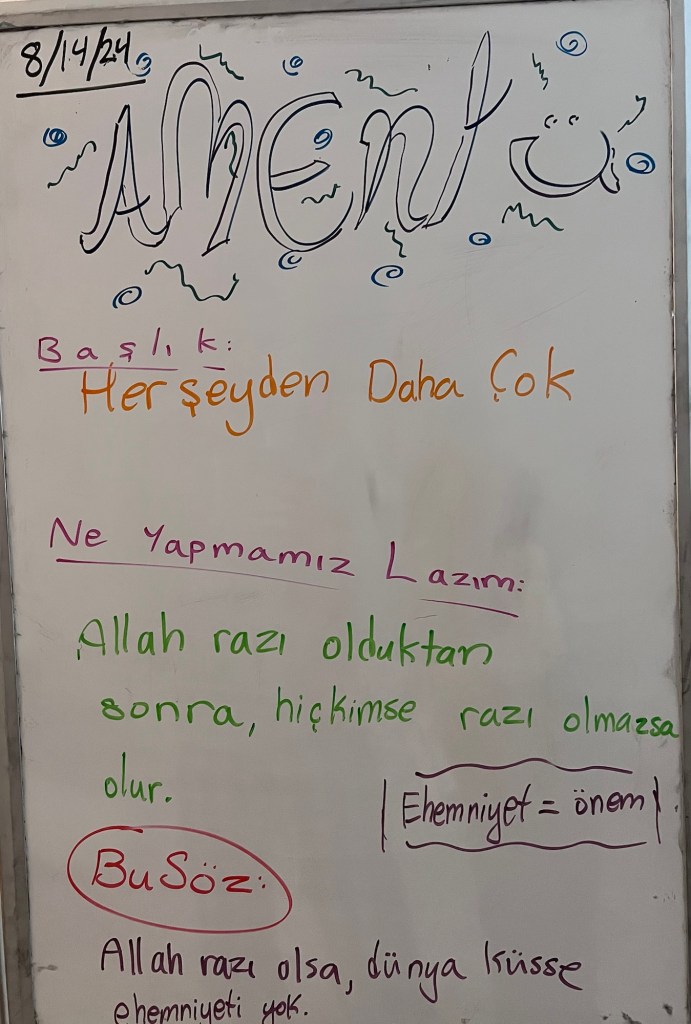 8/14/24
AMENTÜ
Başlık:
Her şeyden Daha Çok
Ne Yapmamız Lazım:
Allah razı olduktan
sonra, hiçkimse razı olmazsa
olur.
Ehemniyet = önem
Bu Söz:
Allah razı olsa, dünya küsse
ehemniyeti yok.